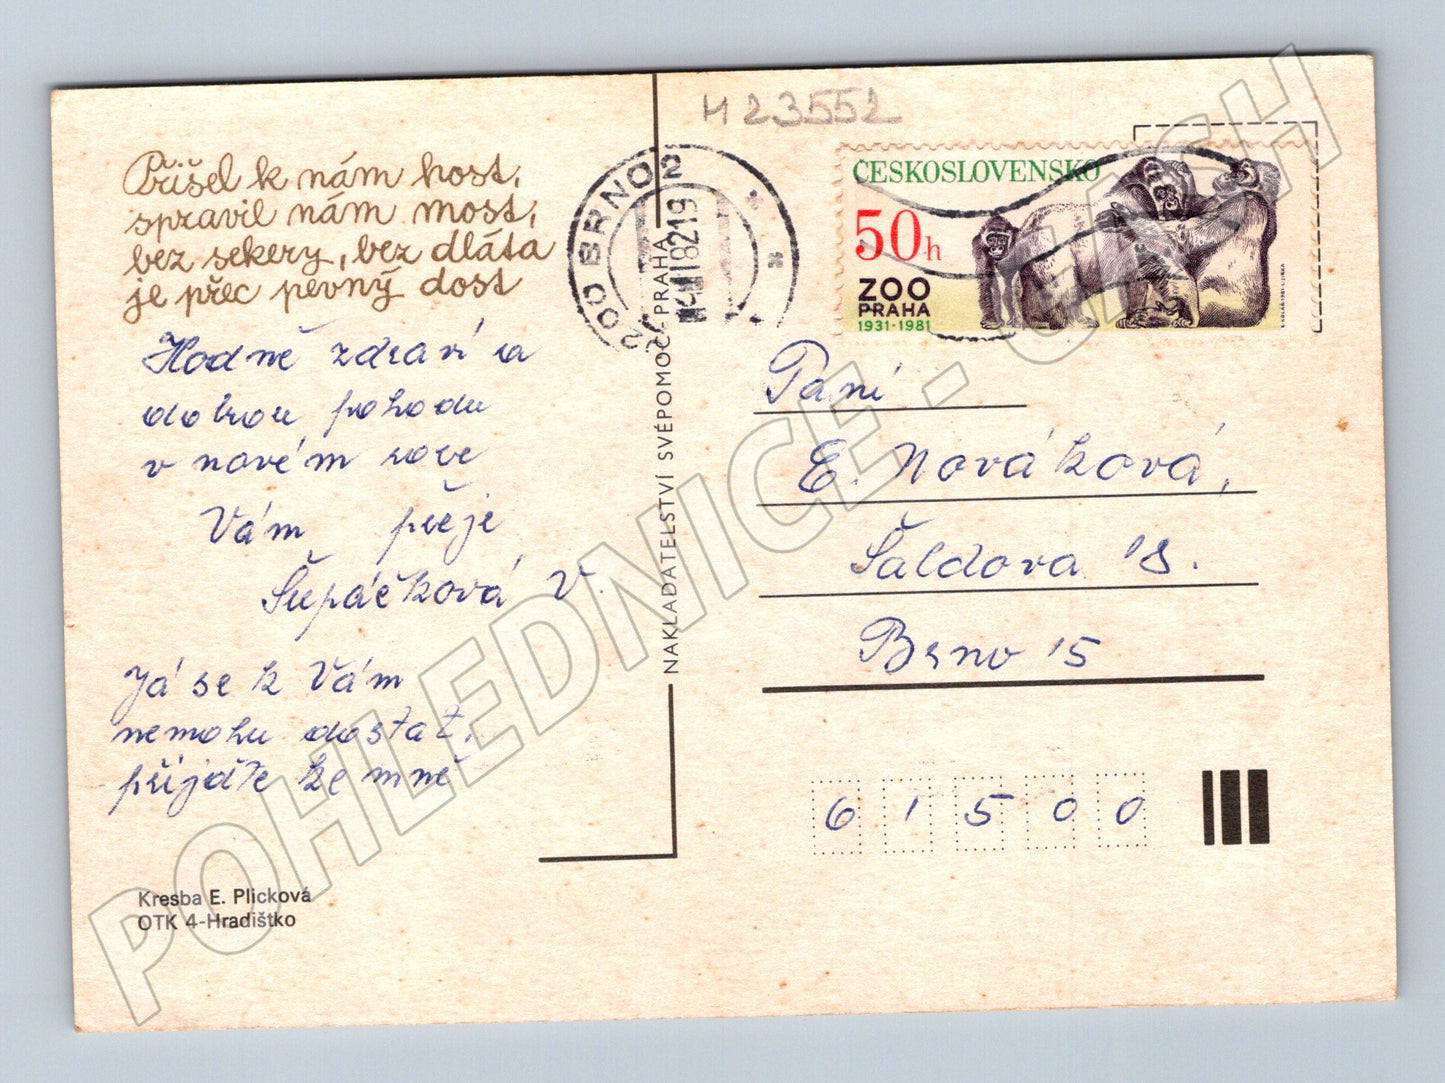 H 23552
Přišel k nám host,
spravil nám most,
bez sekery, bez dláta
je přec pevný dost
Hodně zdraví a
dobrou pohodu
v novém roce
Vám přeje
Šupáčková V.
Já se k Vám
nemohu dostat,
přijďte ke mně
Kresba E. Plicková
OTK 4-Hradištko
NAKLADATELSTVÍ SVÉPOMOC - PRAHA
BRNO 2
ČESKOSLOVENSKO
50h
ZOO
PRAHA
1931-1981
Paní
E. Nováková,
Šaldova 18.
Brno 15
6 1 5 0 0
POHLEDNICE - CASH